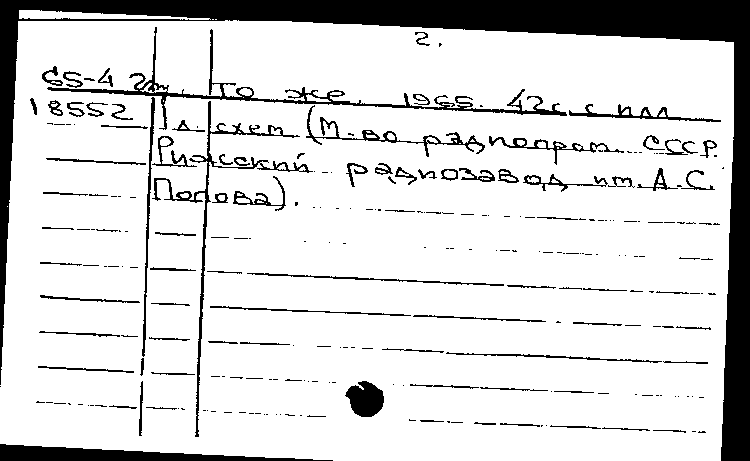 2.
65-4 То же. 1965. 42 с. с илл
18552 1 л. схем (М-во радиопром. СССР.
Рижский радиозавод им. А.С.
Попова).